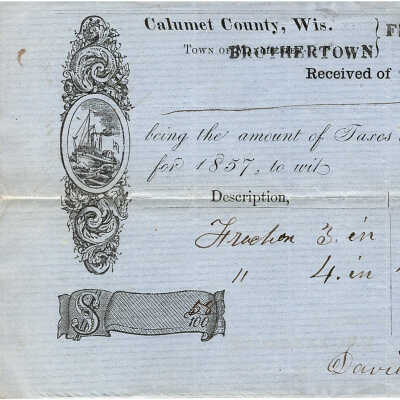 Calumet County, Wis.
Town of BROTHERTOWN
Received of
being the amount of Taxes
for 1857, to wit
Description,
Fraction 3. in
" 4. in
$ 58/100
David